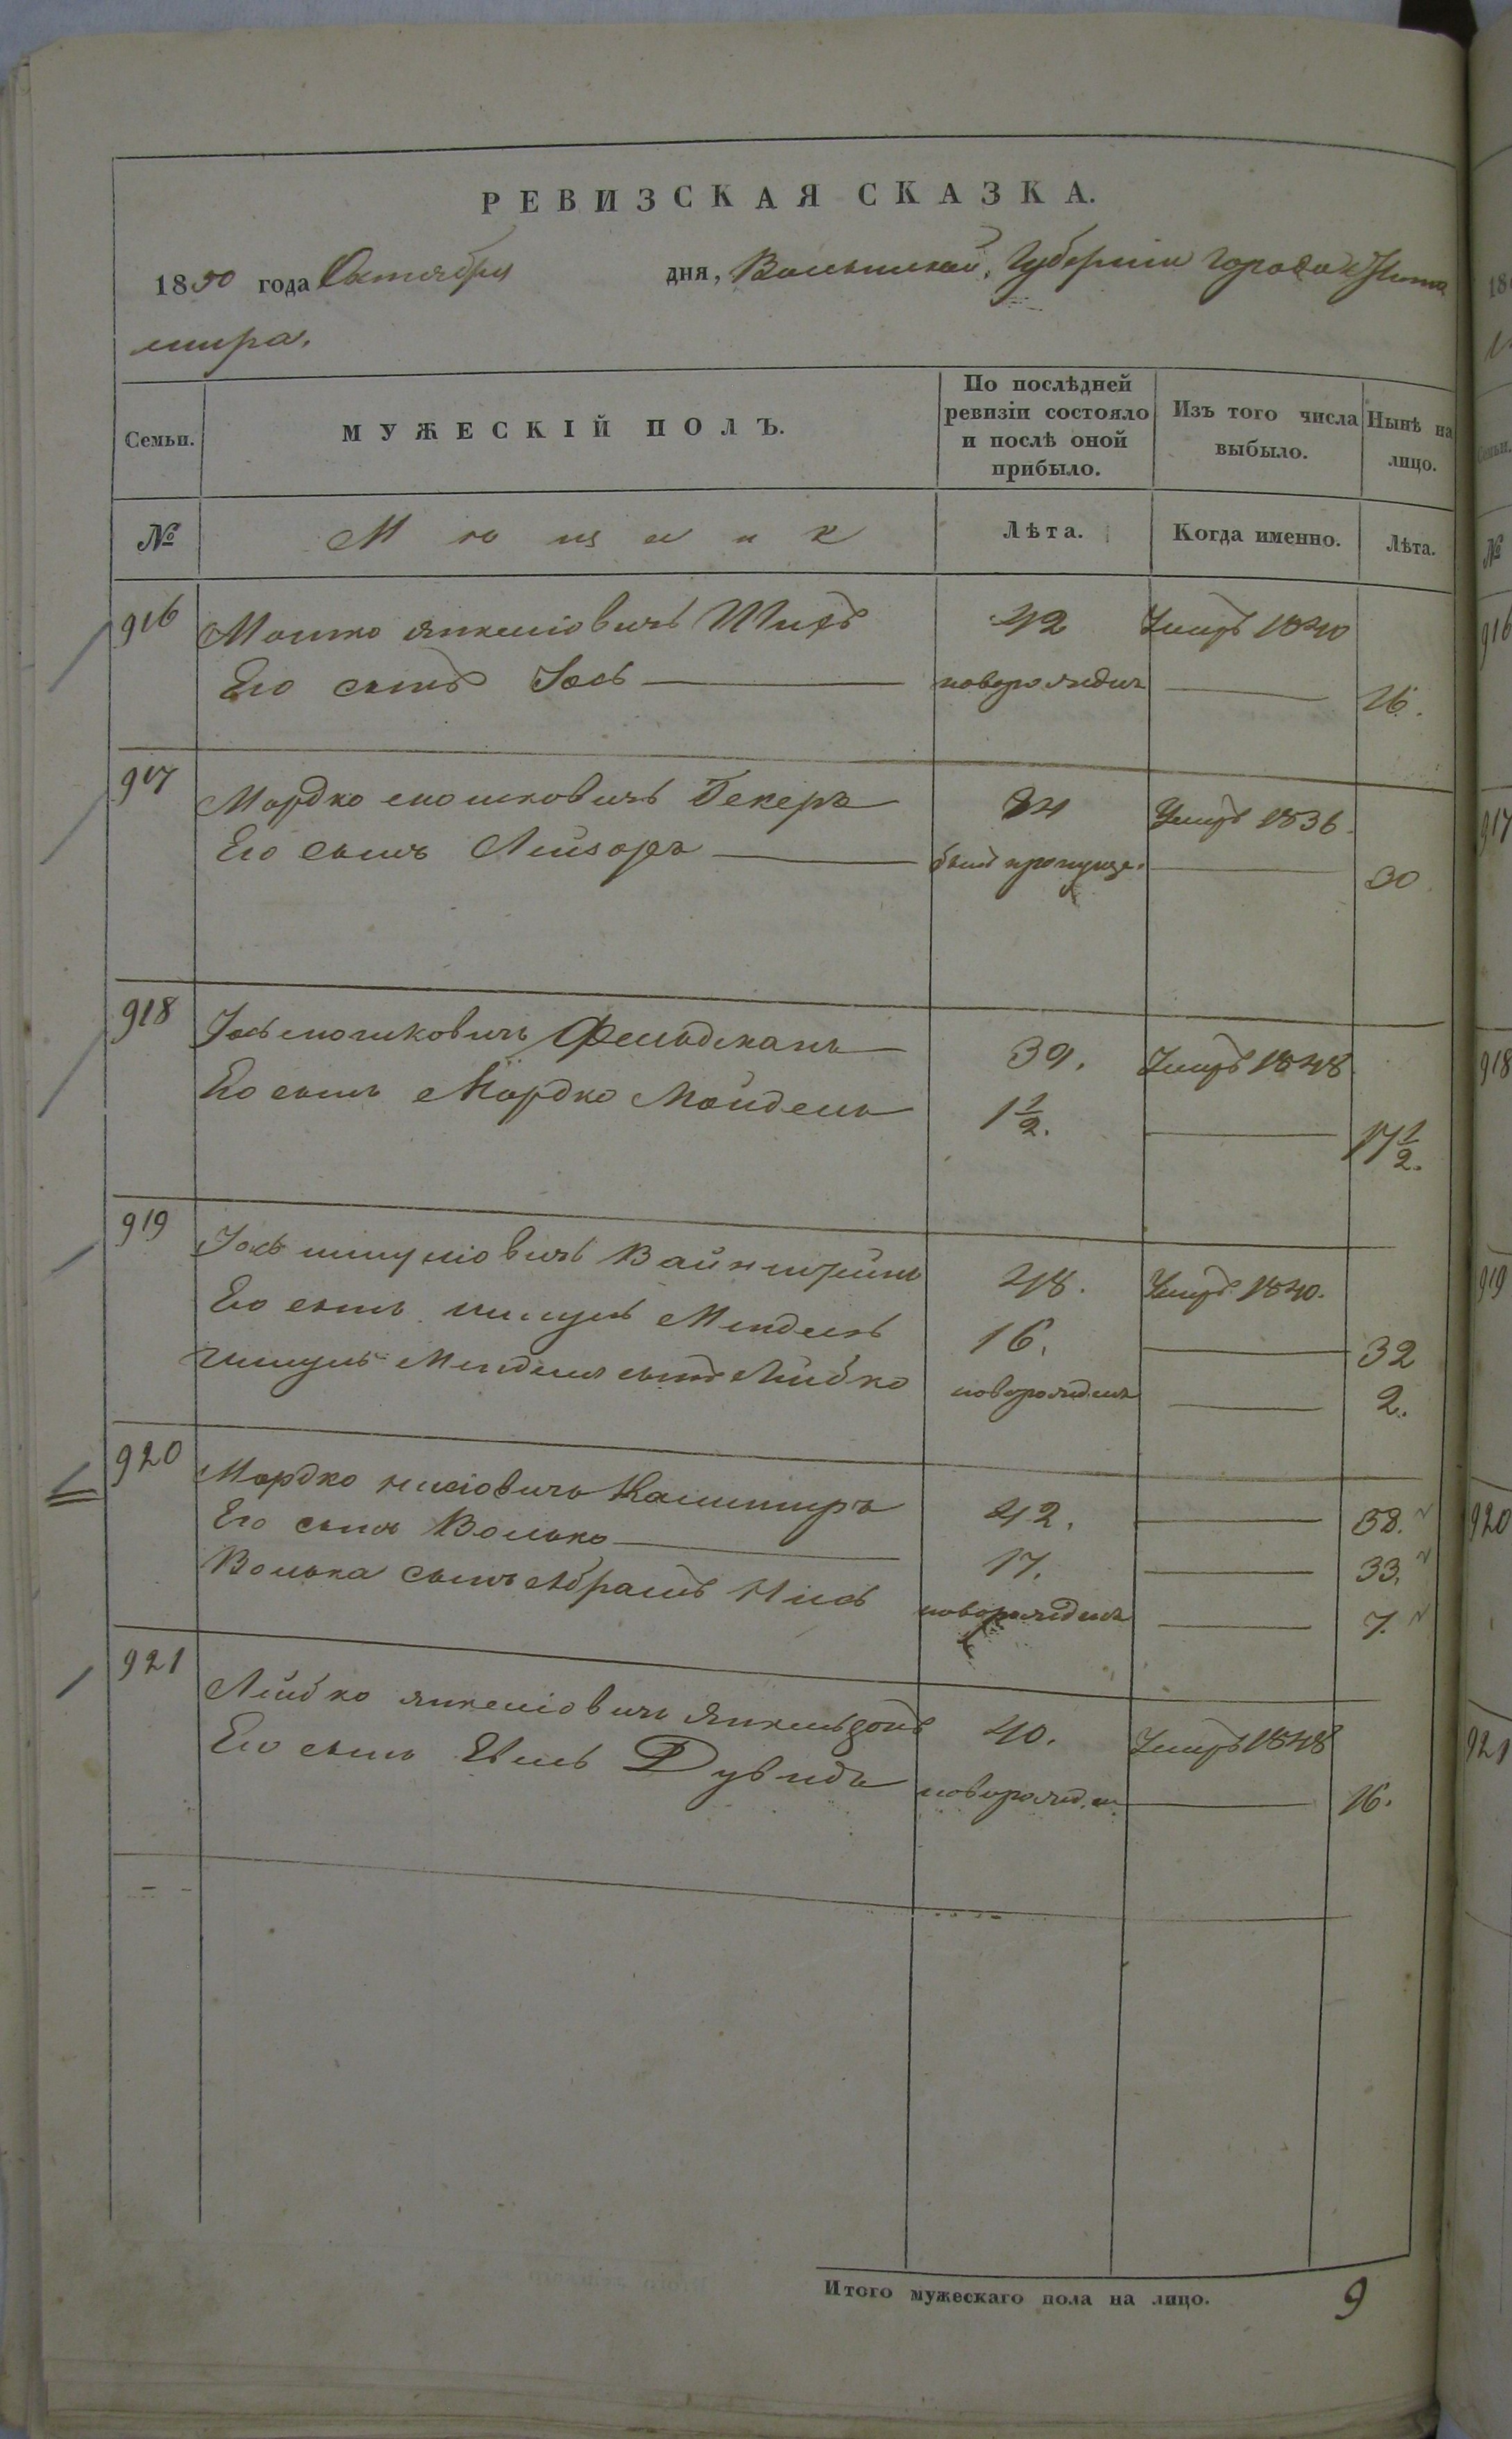 РЕВИЗСКАЯ СКАЗКА.
1850 года Октября дня, Волынской, Губернии города Жито
мира.
Семьи. МУЖЕСКІЙ ПОЛЪ. По послѣдней ревизіи состояло и послѣ оной прибыло. Изъ того числа выбыло. Нынѣ на лицо.
№ Лѣта. Когда именно. Лѣта.
916 Мошко Янкеліовичъ 42 Умеръ 1840
Его сынъ Іось новорожден 16.
917 Мордко Мошковичъ Бекеръ 34 Умеръ 1836.
Его сынъ Лейзоръ былъ пропущ. 30
918 Іось Мошковичъ Фельдманъ 39. Умеръ 1848
Его сынъ Мордко Мендель 1½. 17½.
919 Іось Шмуліовичъ Вайнштейнъ 48. Умеръ 1840.
Его сынъ Шмуль Мендель 16. 32
Шмуль Менделя сынъ Лейбко новорожден 2.
920 Мордко Нисіовичъ 42. 58.
Его сынъ Волько 17. 33.
Волька сынъ Абрамъ Нись новорожден 7.
921 Лейбко Янкеліовичъ Янкельзонъ 40. Умеръ 1848
Его сынъ Дувидъ новорожден. 16.
Итого мужескаго пола на лицо. 9
18
Семьи.
№
916
917
918
919
920
921